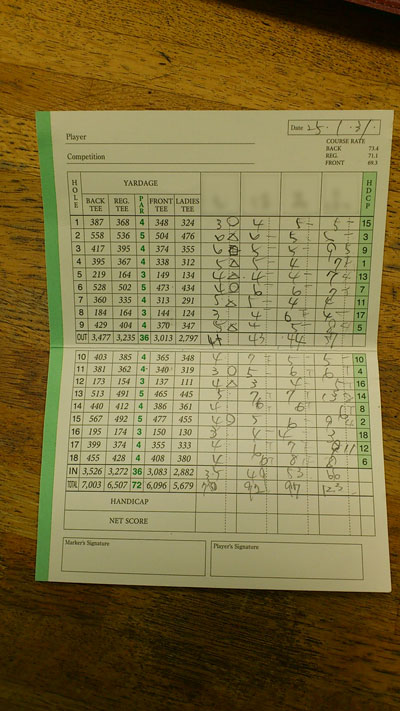 Date 25.1.31.
Player
COURSE RATE
BACK 73.4
Competition
REG. 71.1
FRONT 69.3
HOLE YARDAGE HDCP
BACK TEE REG. TEE PAR FRONT TEE LADIES TEE
1 387 368 4 348 324 3 4 5 5 15
2 558 536 5 504 476 6 6 5 5 3
3 417 395 4 374 355 6 5 5 9
4 395 367 4 338 312 5 5 4 7 1
5 219 164 3 149 134 4 4 4 7 13
6 528 502 5 473 434 4 6 6 7
7 360 335 4 313 291 5 5 4 4 11
8 184 164 3 144 124 3 4 6 4 17
9 429 404 4 370 347 5 4 5 5
OUT 3,477 3,235 36 3,013 2,797 43 44
10 403 385 4 365 348 4 7 5 5 10
11 381 362 4 340 319 3 5 6 6 4
12 173 154 3 137 111 4 3 4 5 16
13 513 491 5 465 445 5 7 7 13 14
14 440 412 4 386 361 4 6 6 8
15 567 492 5 477 455 4 5 6 9 2
16 195 174 3 150 130 3 4 4 3 18
17 399 374 4 355 333 4 7 7 11 12
18 455 428 4 408 380 4 6 8 8 6
IN 3,526 3,272 36 3,083 2,882 35 53 66
TOTAL 7,003 6,507 72 6,096 5,679 92 97 123
HANDICAP
NET SCORE
Marker's Signature Player's Signature